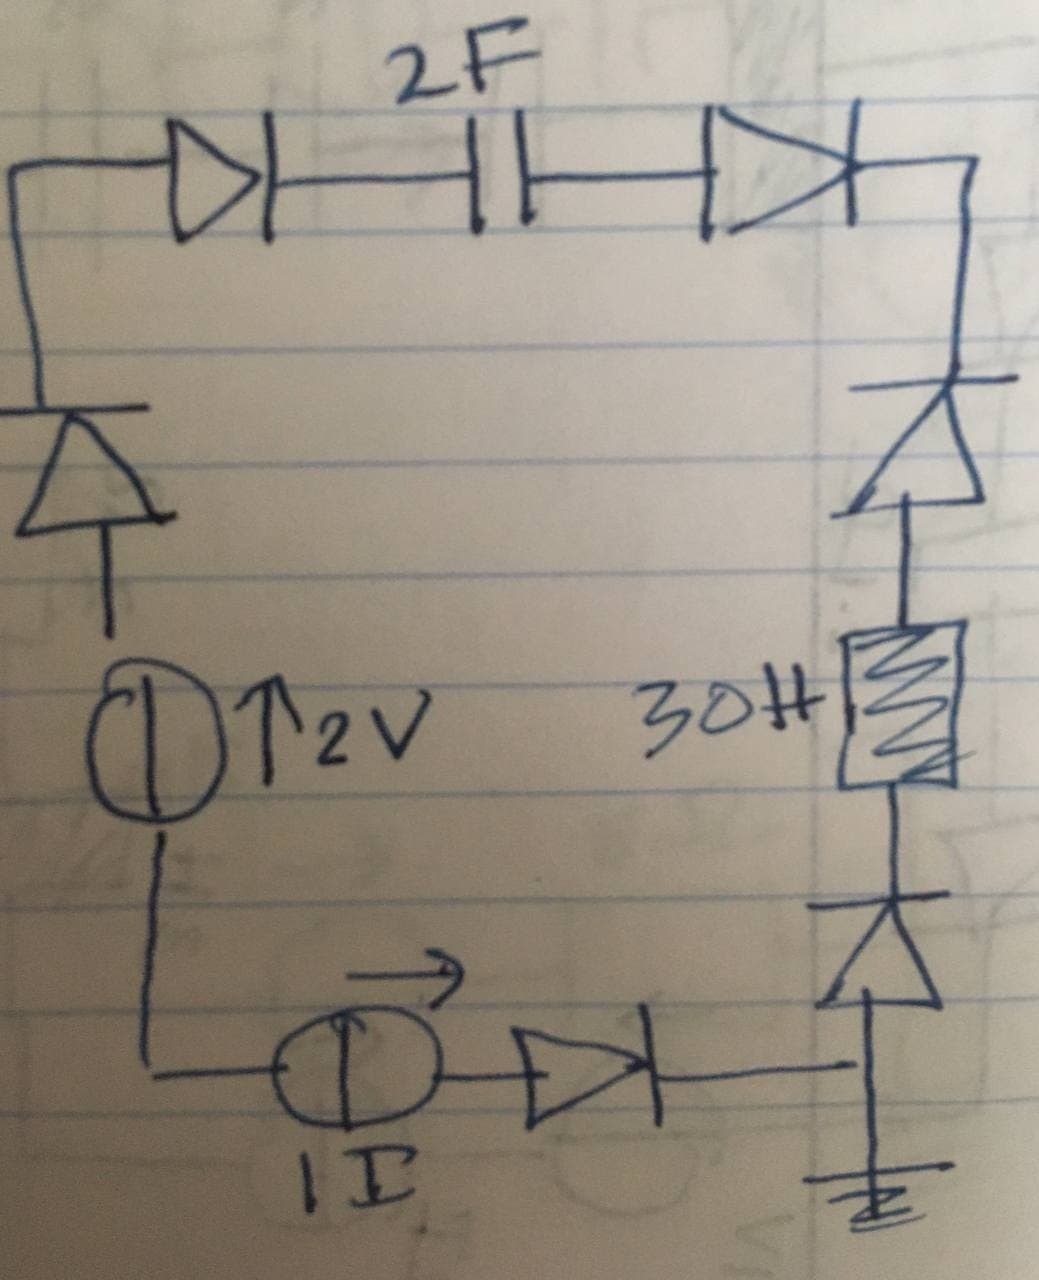 2F
2V
30H
1I